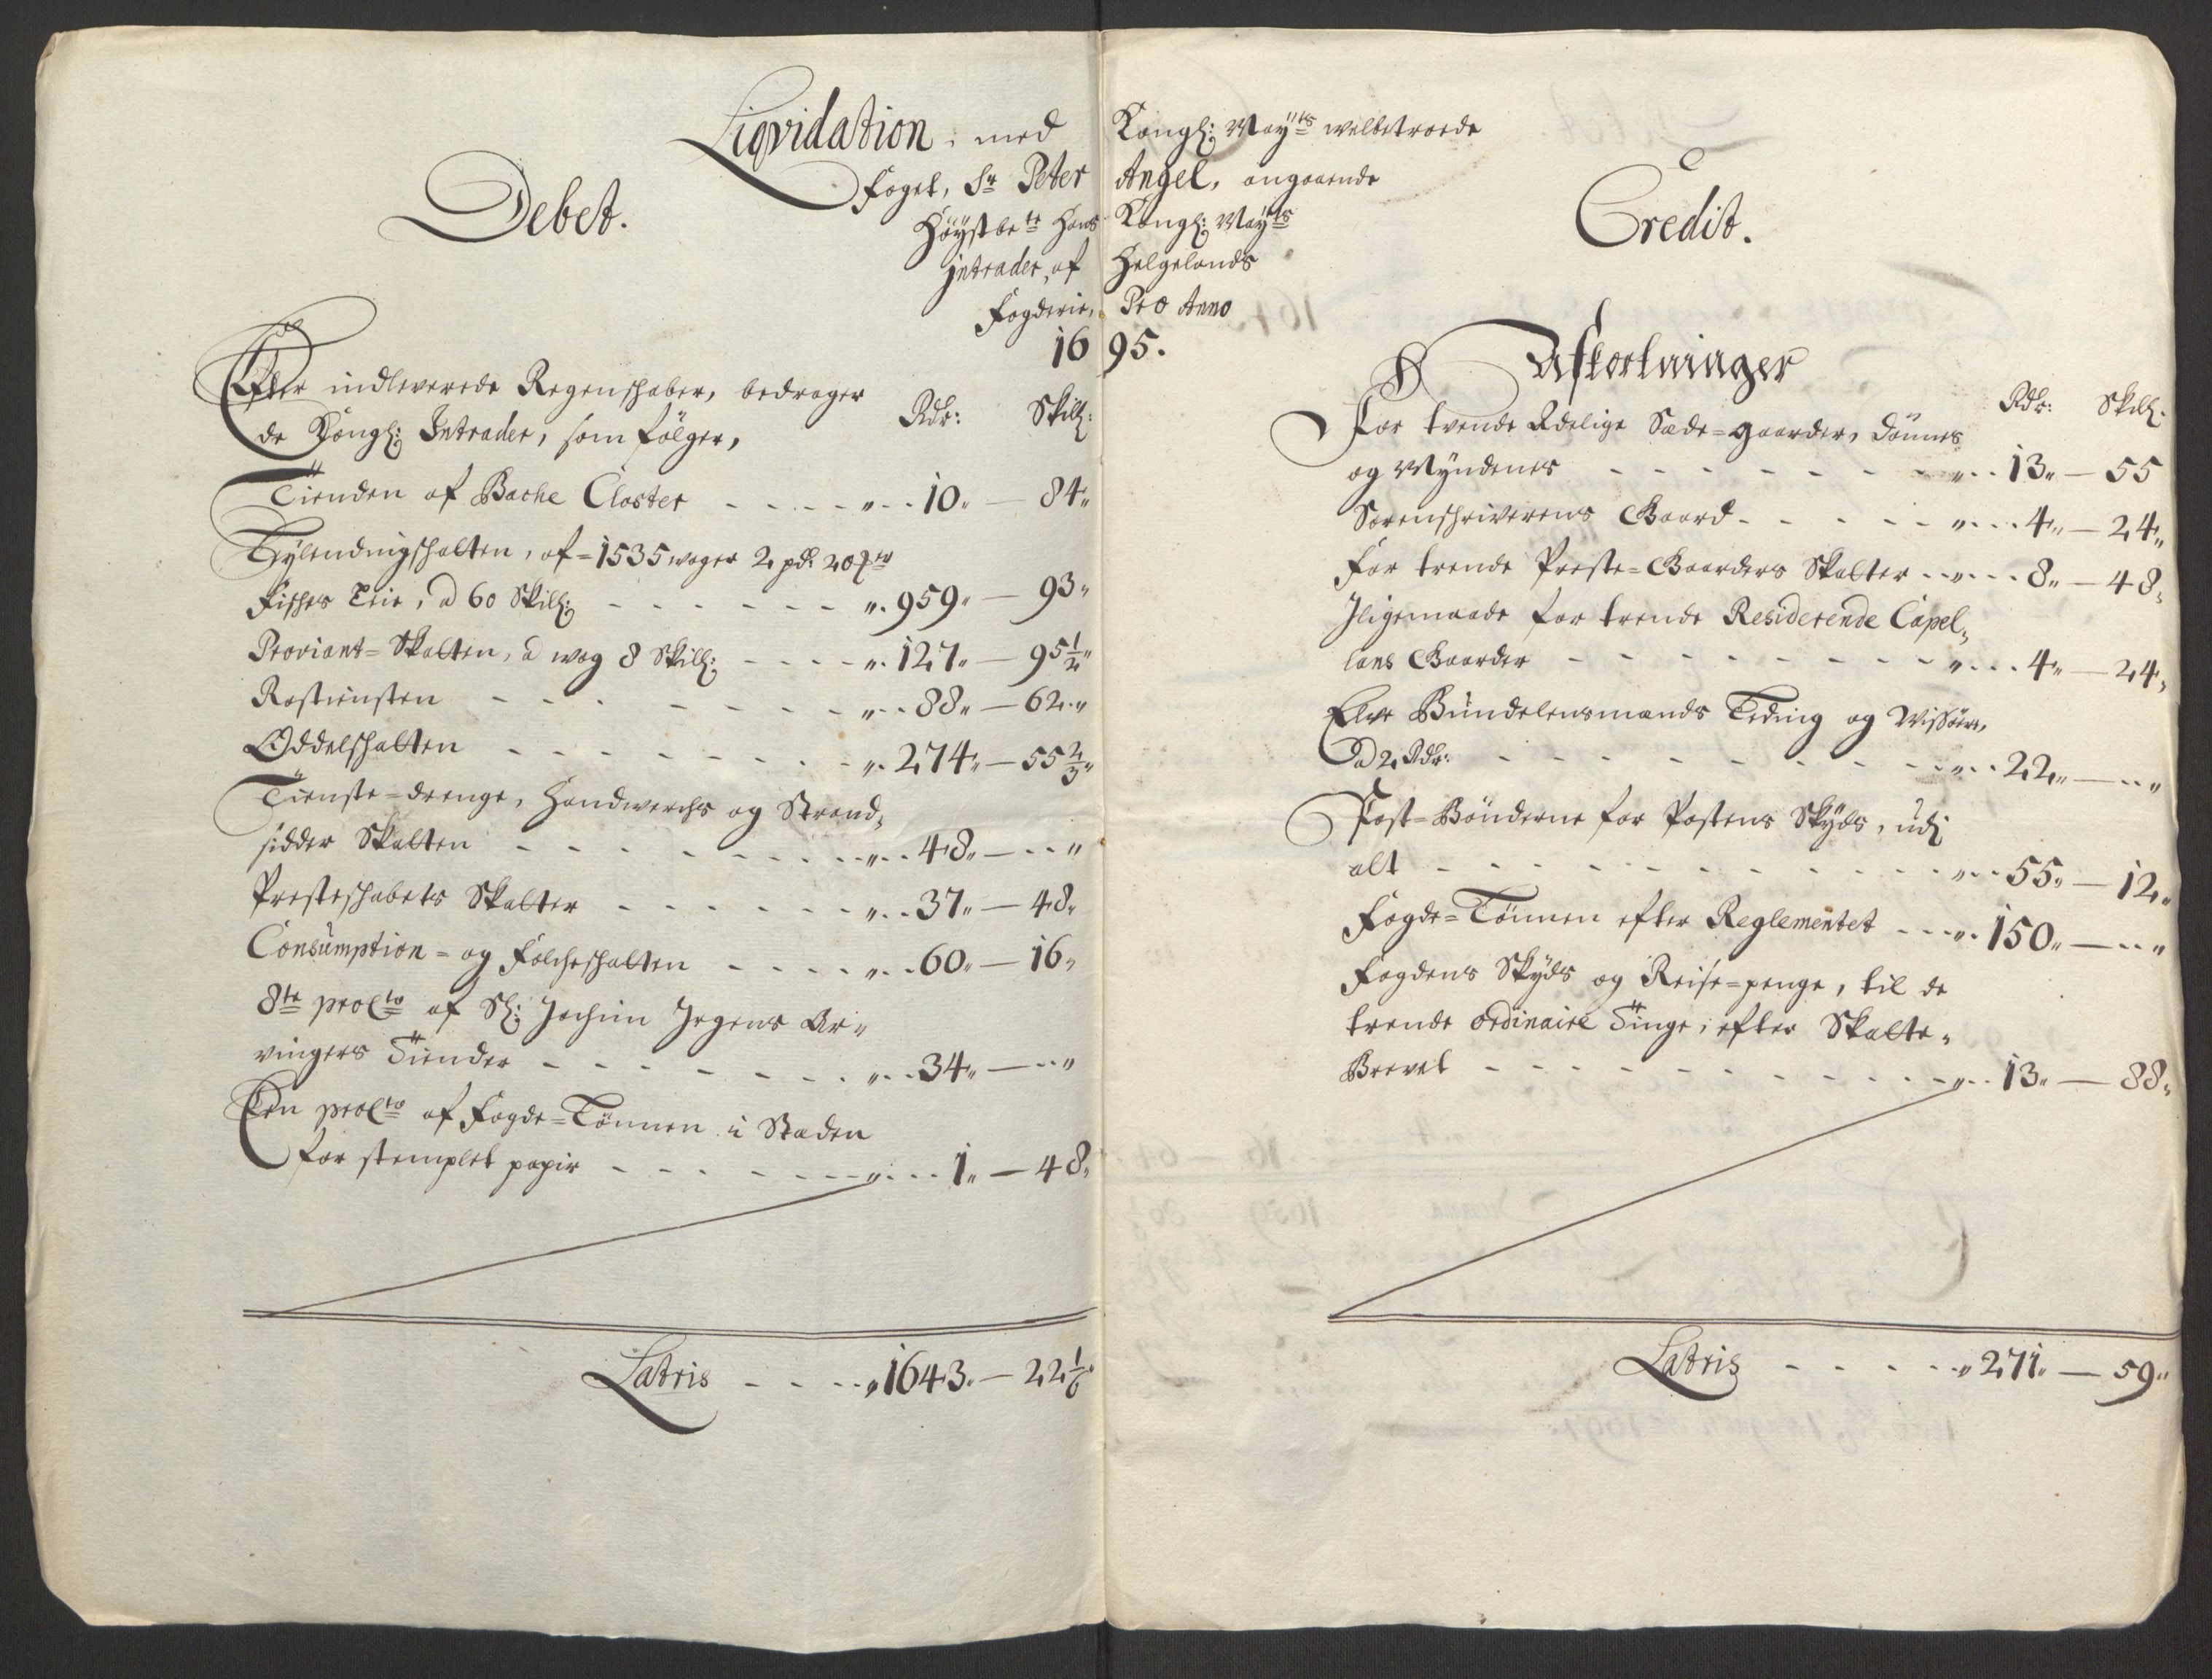 Liqvidation, med Kongl: May:ts velbetroede
Foget, Sr Peter Angel, angaaende
Høystbe:te Hans Kongl: May:ts
jntrader, af Helgelands
Fogderie, Pro Anno
1695.
Debet.
Efter indleverede Regenschaber, bedrager
de Kongl: Intrader, som følger,
Rdr: Skill:
Tienden af Bache Closter - - - - - „ - - 10„ — 84„
Leylendingschatten, af = 1535 woger 2 pd:
Fisches Leie, a 60 Skill: - - - - - - „ - 959„ — 93„
Proviant = Skatten, a wog 8 Skill: - - - - „ - 127„ — 95 1/2„
Rostiensten - - - - - - - - „ - - 88„ — 62 - „
Oddelschatten - - - - - - - - „ - 274„ — 55 2/3„
Tienste = drenge, Handwerchs og Strand„
sidder Skatten - - - - - - - - „ - - 48„ — - - „
Presteschabets Skatter - - - - - - „ - - 37„ — 48„
Consumption = og Folcheschatten - - - - „ - - 60„ — 16„
8te prol:to af Sl: Jochim Jrgens Ar„
vingers Tiender - - - - - - - „ - - 34„ — - - „
Een prol:to af Fogde = Tønnen i Staden
for stemplet papir - - - - - - - „ - - - 1„ — 48„
Latris - - - - „ 1643„ — 22 1/6„
Credit.
Afkortninger
Rdr: Skill:
For tvende Adelige Sæde = gaarder, Dønnes
og Myndenes - - - - - - - - „ - - 13„ — 55
Sorenschriverens Gaard - - - - - „ - - - 4„ — 24„
For trende Preste = Gaarders Skatter - - „ - - - 8„ — 48„
Jligemaade for trende Residerende Capel„
lans Gaarder - - - - - - - - - „ - - - 4„ — 24„
Elve Bundelensmands Leding og Wissøre,
a 2 Rdr: - - - - - - - - - „ - - 22„ — - - „
Post = Bønderne for Postens Skyds, udj
alt - - - - - - - - - - - - „ - - 55„ — 12„
Fogde = Tønnen efter Reglementet - - - „ - 150„ — - - „
Fogdens Skyds og Reise = penge, til de
trende ordinaire Tinge, efter Skatte„
Brevet - - - - - - - - - - - „ - - 13„ — 88„
Latris - - - - - „ 271„ — 59„